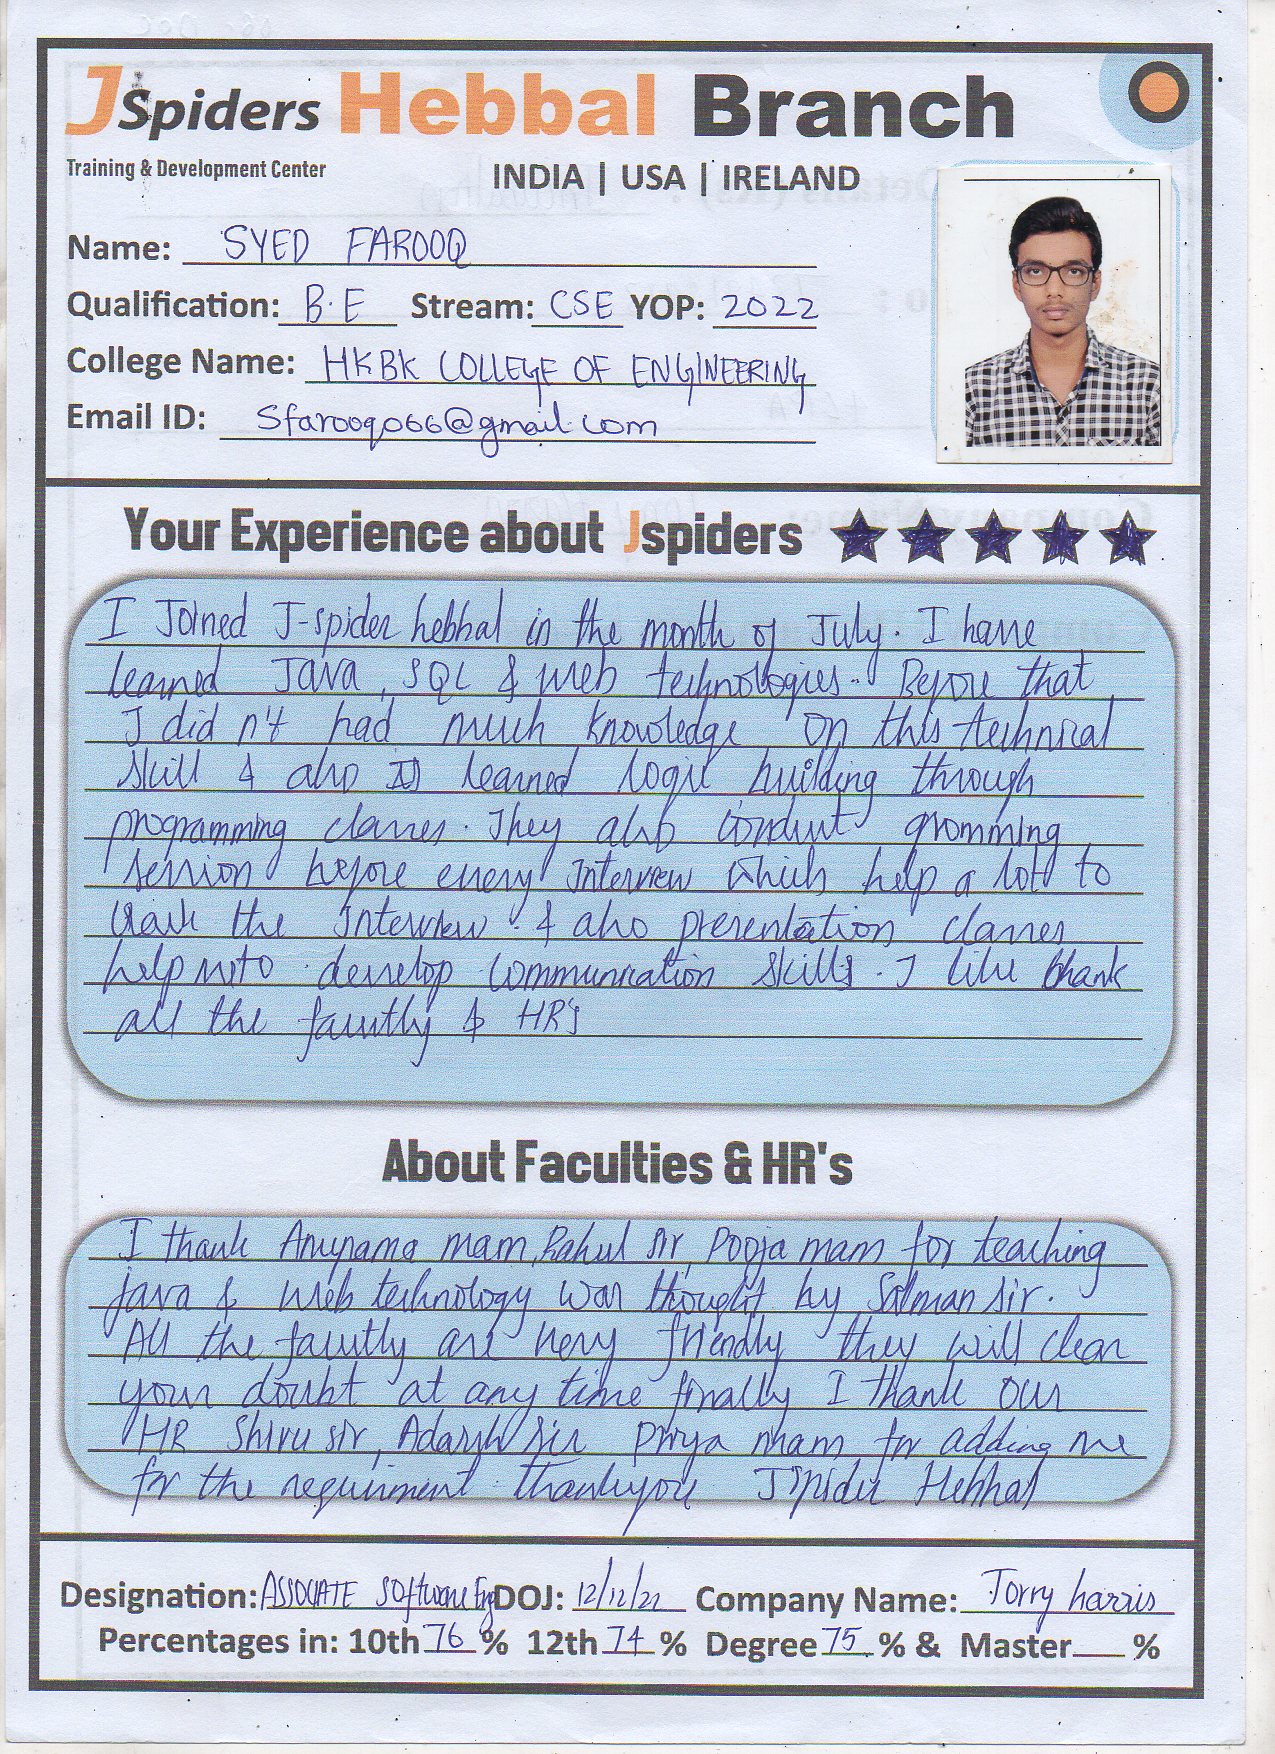 JSpiders Hebbal Branch
Training & Development Center
INDIA | USA | IRELAND
Name: SYED FAROOQ
Qualification: B.E Stream: CSE YOP: 2022
College Name: HKBK COLLEGE OF ENGINEERING
Email ID: Sfarooq066@gmail.com
Your Experience about Jspiders
I Joined J-spider hebbal in the month of July. I have
learned Java, SQL & Web technologies. Before that
I did n't had much knowledge on this technical
skill & also I learned logic building through
programming classes. They also conduct gromming
session before every Interview which help a lot to
crack the Interview. & also presentation classes
help us to develop communication skills. I like thank
all the faculty & HR's
About Faculties & HR's
I thank Anupama mam, Rahul sir, Pooja mam for teaching
java & web technology was thought by Salman sir.
All the faculty are very friendly they will clear
your doubt at any time finally I thank our
HR Shivu sir, Adarsh sir Priya mam for adding me
for the requirment. thankyou Jspider Hebbal
Designation: ASSOCIATE Software Eng DOJ: 12/12/22 Company Name: Torry harris
Percentages in: 10th 76 % 12th 74 % Degree 75 % & Master %